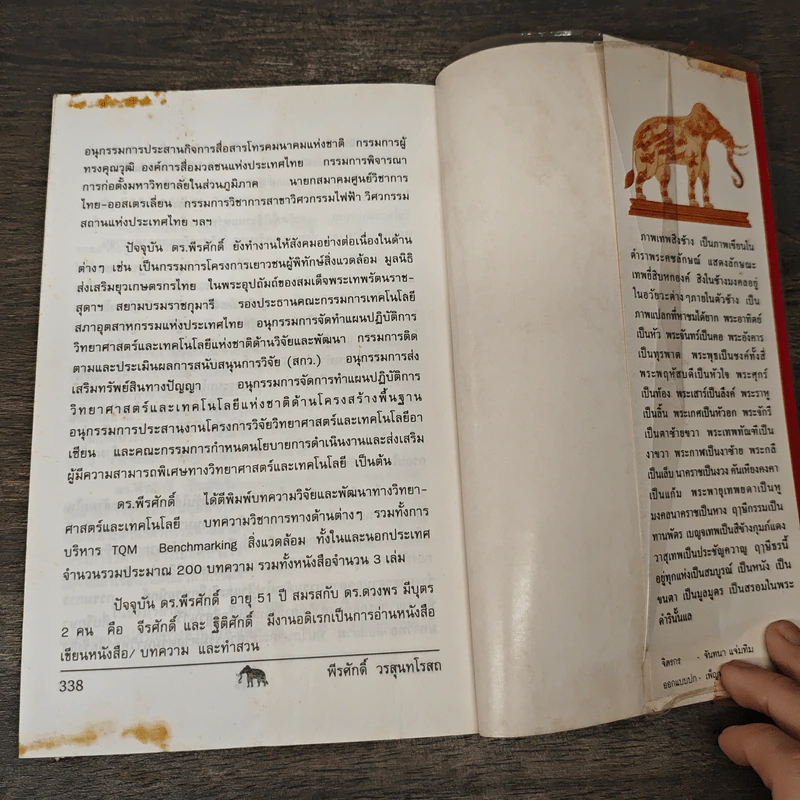 อนุกรรมการประสานกิจการสื่อสารโทรคมนาคมแห่งชาติ กรรมการผู้
ทรงคุณวุฒิ องค์การสื่อมวลชนแห่งประเทศไทย กรรมการพิจารณา
การก่อตั้งมหาวิทยาลัยในส่วนภูมิภาค นายกสมาคมศูนย์วิชาการ
ไทย-ออสเตรเลี่ยน กรรมการวิชาการสาขาวิศวกรรมไฟฟ้า วิศวกรรม
สถานแห่งประเทศไทย ฯลฯ
ปัจจุบัน ดร.พีรศักดิ์ ยังทำงานให้สังคมอย่างต่อเนื่องในด้าน
ต่างๆ เช่น เป็นกรรมการโครงการเยาวชนผู้พิทักษ์สิ่งแวดล้อม มูลนิธิ
ส่งเสริมยุวเกษตรกรไทย ในพระอุปถัมภ์ของสมเด็จพระเทพรัตนราช-
สุดาฯ สยามบรมราชกุมารี รองประธานคณะกรรมการเทคโนโลยี
สภาอุตสาหกรรมแห่งประเทศไทย อนุกรรมการจัดทำแผนปฏิบัติการ
วิทยาศาสตร์และเทคโนโลยีแห่งชาติด้านวิจัยและพัฒนา กรรมการติด
ตามและประเมินผลการสนับสนุนการวิจัย (สกว.) อนุกรรมการส่ง
เสริมทรัพย์สินทางปัญญา อนุกรรมการจัดการทำแผนปฏิบัติการ
วิทยาศาสตร์และเทคโนโลยีแห่งชาติด้านโครงสร้างพื้นฐาน
อนุกรรมการประสานงานโครงการวิจัยวิทยาศาสตร์และเทคโนโลยีอา
เซียน และคณะกรรมการกำหนดนโยบายการดำเนินงานและส่งเสริม
ผู้มีความสามารถพิเศษทางวิทยาศาสตร์และเทคโนโลยี เป็นต้น
ดร.พีรศักดิ์ ได้ตีพิมพ์บทความวิจัยและพัฒนาทางวิทยา-
ศาสตร์และเทคโนโลยี บทความวิชาการทางด้านต่างๆ รวมทั้งการ
บริหาร TQM Benchmarking สิ่งแวดล้อม ทั้งในและนอกประเทศ
จำนวนรวมประมาณ 200 บทความ รวมทั้งหนังสือจำนวน 3 เล่ม
ปัจจุบัน ดร.พีรศักดิ์ อายุ 51 ปี สมรสกับ ดร.ดวงพร มีบุตร
2 คน คือ จีรศักดิ์ และ ฐิติศักดิ์ มีงานอดิเรกเป็นการอ่านหนังสือ
เขียนหนังสือ/ บทความ และทำสวน
338 พีรศักดิ์ วรสุนทโรสถ
ภาพเทพสิงช้าง เป็นภาพเขียนใน
ตำราพระคชลักษณ์ แสดงลักษณะ
เทพยี่สิบหกองค์ สิงในช้างมงคลอยู่
ในอวัยวะต่างๆภายในตัวช้าง เป็น
ภาพแปลกที่หาชมได้ยาก พระอาทิตย์
เป็นหัว พระจันทร์เป็นคอ พระอังคาร
เป็นทุรพาด พระพุธเป็นชงค์ทั้งสี่
พระพฤหัสบดีเป็นหัวใจ พระศุกร์
เป็นท้อง พระเสาร์เป็นลึงค์ พระราหู
เป็นลิ้น พระเกศเป็นหัวอก พระจักรี
เป็นตาซ้ายขวา พระเทพทัณฑีเป็น
งาขวา พระกาฬเป็นงาซ้าย พระกลี
เป็นเล็บ นาคราชเป็นงวง คันเหียงคงคา
เป็นแก้ม พระพายุเทพยดาเป็นหู
มงคลนาคราชเป็นหาง ฤาษีกรรมเป็น
ทานพัตร เบญจเทพเป็นสีข้างกุมภ์แดง
วาสุเทพเป็นประขัญควาญ ฤาษีธรนี้
อยู่ทุกแห่งเป็นสมบูรณ์ เป็นหนัง เป็น
ขนตา เป็นมูลมูตร เป็นสรอมในพระ
ดำรินั้นแล
จิตรกร - จันทนา แจ่มทิม
ออกแบบปก -